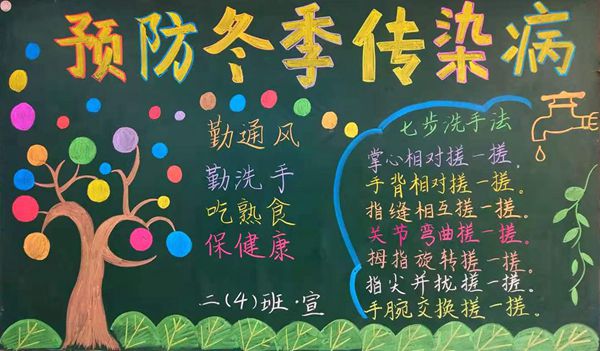 预防冬季传染病
勤通风
勤洗手
吃熟食
保健康
二(4)班·宣
七步洗手法
掌心相对搓一搓。
手背相对搓一搓。
指缝相互搓一搓。
关节弯曲搓一搓。
拇指旋转搓一搓。
指尖并拢搓一搓。
手腕交换搓一搓。